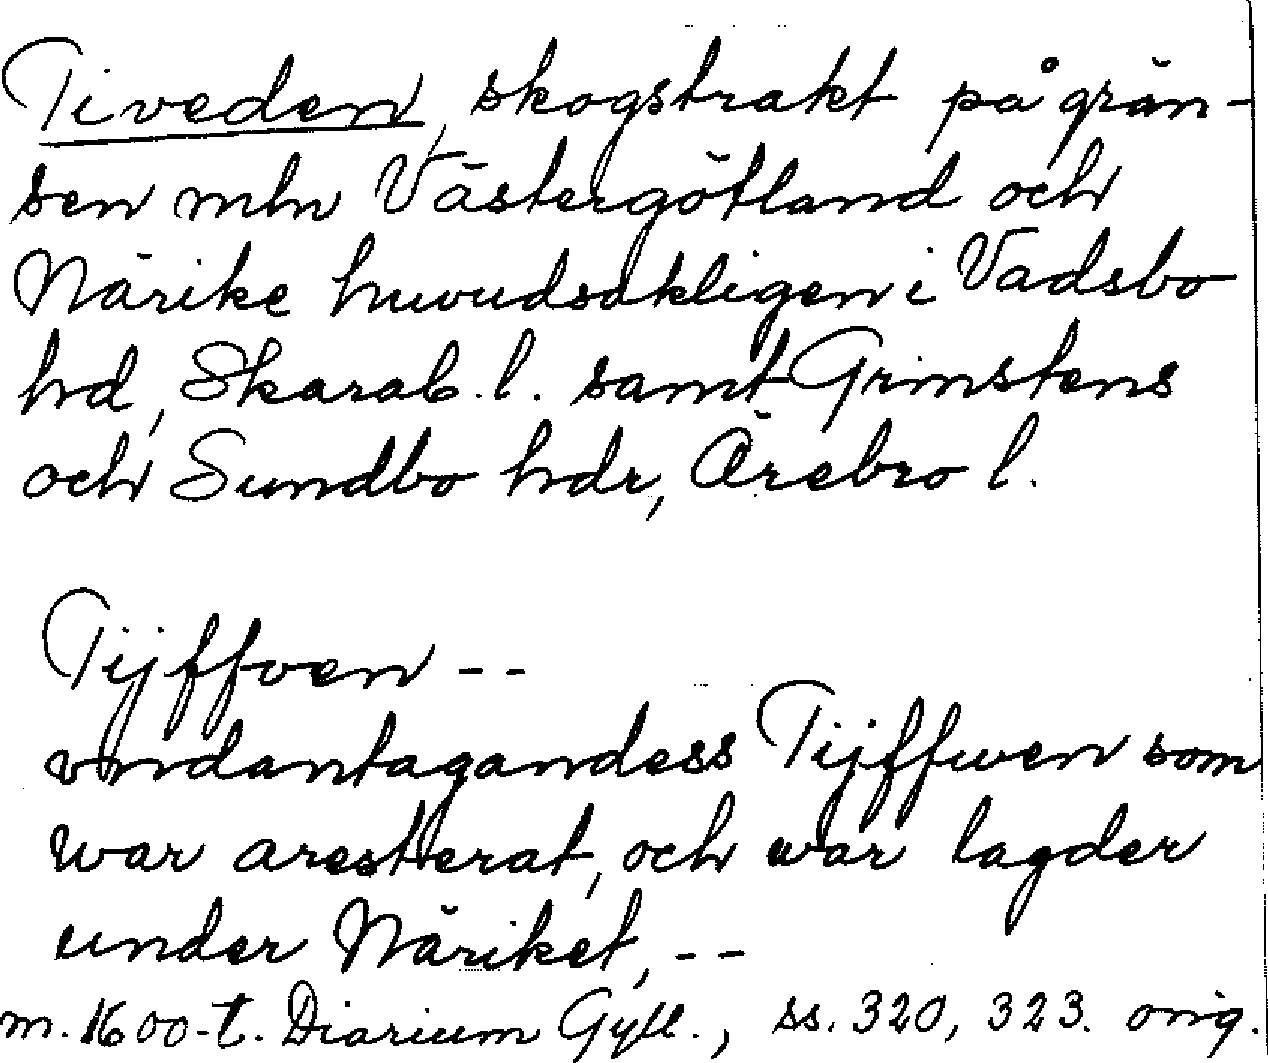 Tiveden, skogstrakt på grän-
sen mln Västergötland och
Närike huvudsakligen i Vadsbo
hd, Skarab. l. samt Grimstens
och Sundbo hdr, Örebro l.
Tijffven --
vndantagandess Tijffwen som
war aresterat, och war lagder
under Näriket, --
m. 1600-t. Diarium Gyll., ss. 320, 323. orig.